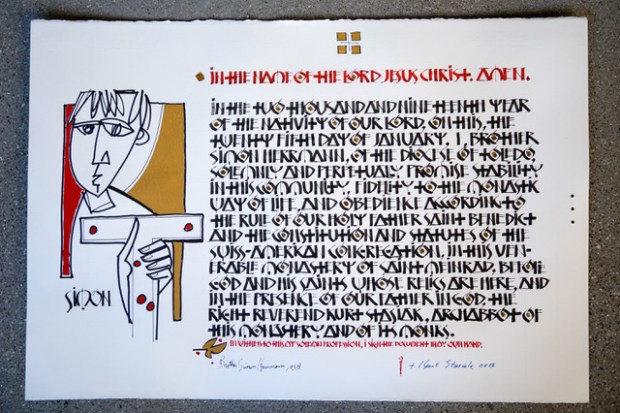 IN THE NAME OF THE LORD JESUS CHRIST. AMEN.
IN THE TWO THOUSAND AND NINETEENTH YEAR
OF THE NATIVITY OF OUR LORD, ON THIS, THE
TWENTY FIFTH DAY OF JANUARY, I, BROTHER
SIMON HERRMANN, OF THE DIOCESE OF TOLEDO,
SOLEMNLY AND PERPETUALLY, PROMISE STABILITY
IN THIS COMMUNITY, FIDELITY TO THE MONASTIC
WAY OF LIFE, AND OBEDIENCE ACCORDING TO
THE RULE OF OUR HOLY FATHER SAINT BENEDICT
AND THE CONSTITUTION AND STATUTES OF THE
SWISS-AMERICAN CONGREGATION, IN THIS VEN-
ERABLE MONASTERY OF SAINT MEINRAD, BEFORE
GOD AND HIS SAINTS WHOSE RELICS ARE HERE, AND
IN THE PRESENCE OF OUR FATHER IN GOD, THE
RIGHT REVEREND KURT STASIAK, ARCHABBOT OF
THIS MONASTERY, AND OF ITS MONKS.
IN WITNESS TO THIS MY SOLEMN PROFESSION, I SIGN THIS DOCUMENT IN MY OWN HAND.
SIMON
Brother Simon Herrmann, OSB
+ Kurt Stasiak, OSB